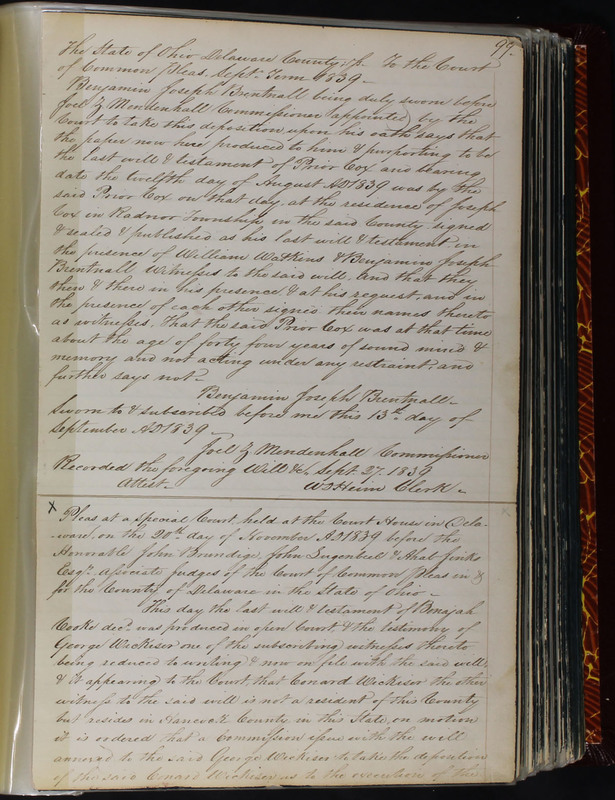 99.
The State of Ohio Delaware County ss. To the Court
of Common Pleas. Sept. Term 1839 –
Benjamin Joseph Brentnall being duly sworn before
Joel Z Mendenhall Commissioner appointed by the
Court to take this deposition upon his oath says that
the paper now here produced to him & purporting to be
the last will & testament of Prior Cox and bearing
date the twelfth day of August AD1839 was by the
said Prior Cox on that day at the residence of Joseph
Cox in Radnor Township in the said County signed
& sealed & published as his last will & testament in
the presence of William Watkins & Benjamin Joseph
Brentnall Witnesses to the said will. And that they
then & there in his presence & at his request and in
the presence of each other signed their names thereto
as witnesses. That the said Prior Cox was at that time
about the age of forty four years of sound mind &
memory and not acting under any restraint, and
further says not –
Benjamin Joseph Brentnall –
Sworn to & subscribed before me this 13th day of
September AD1839
Joel Z Mendenhall Commissioner
Recorded the foregoing Will &c. Sept 27. 1839
Attest – W D Heim Clerk –
x
Pleas at a Special Court held at the Court House in Dela-
-ware, on the 20th day of November AD1839 before the
Honorable John Brundige, John Lugenbeel & Ahab Jinks
Esqrs. Associate Judges of the Court of Common Pleas in &
for the County of Delaware in the State of Ohio –
This day the last will & testament of Benajah
Cooke decd. was produced in open Court, & the testimony of
George Wickiser one of the subscribing witnesses thereto
being reduced to writing & now on file with the said will
& it appearing to the Court, that Conard Wickiser the other
witness to the said will is not a resident of this County
but resides in Hancock County in this State, on motion
it is ordered that a Commission issue with the will
annexed to the said George Wickiser to take the deposition
of the said Conard Wickiser as to the execution of the